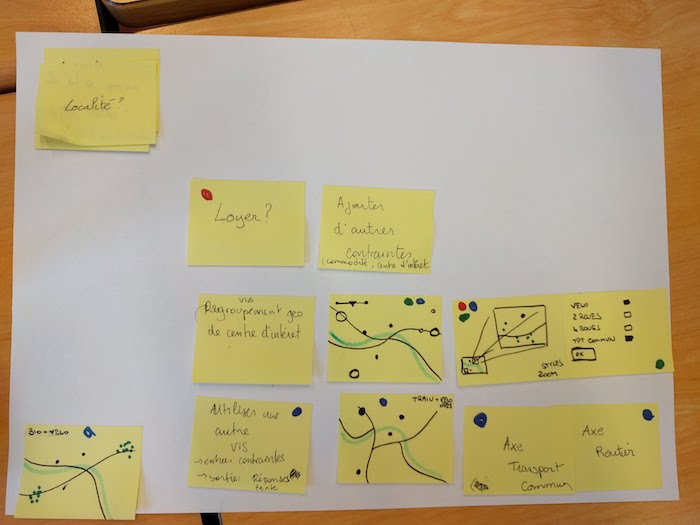 Localité?
Loyer?
Ajouter
d'autres
contraintes
(commodité, centre d'intéret)
via
Regroupement geo
de centre d'intéret
VELO
2 ROUES
4 ROUES
TPT COMMUN
OK
STYLES
ZOOM
BIO + VELO
Utiliser une
autre
vis
→ entrées contraintes
→ sorties Réponses
texte
TRAIN + VELO
Axe
Transport
Commun
Axe
Routier